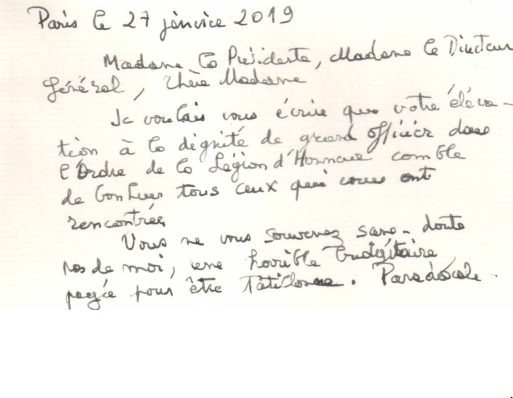 Paris le 27 janvier 2019
Madame la Présidente, Madame le Directeur
Général, Chère Madame
Je voulais vous écrire que votre éléva-
tion à la dignité de grand officier dans
l'Ordre de la Légion d'Honneur comble
de bonheur tous ceux qui vous ont
rencontrée
Vous ne vous souvenez sans-doute
pas de moi, une horrible budgétaire
payée pour être tatillonne. Paradoxale.